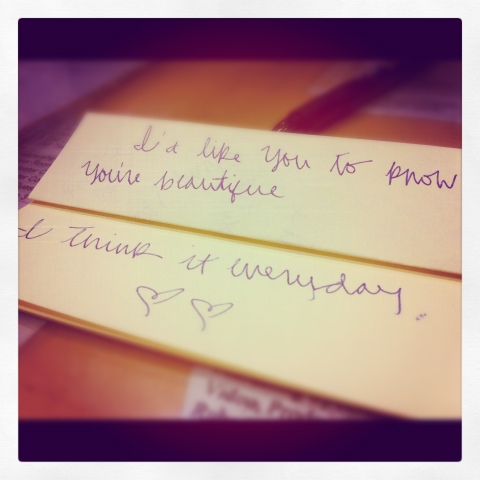 I'd like you to know
you're beautiful
I think it everyday.